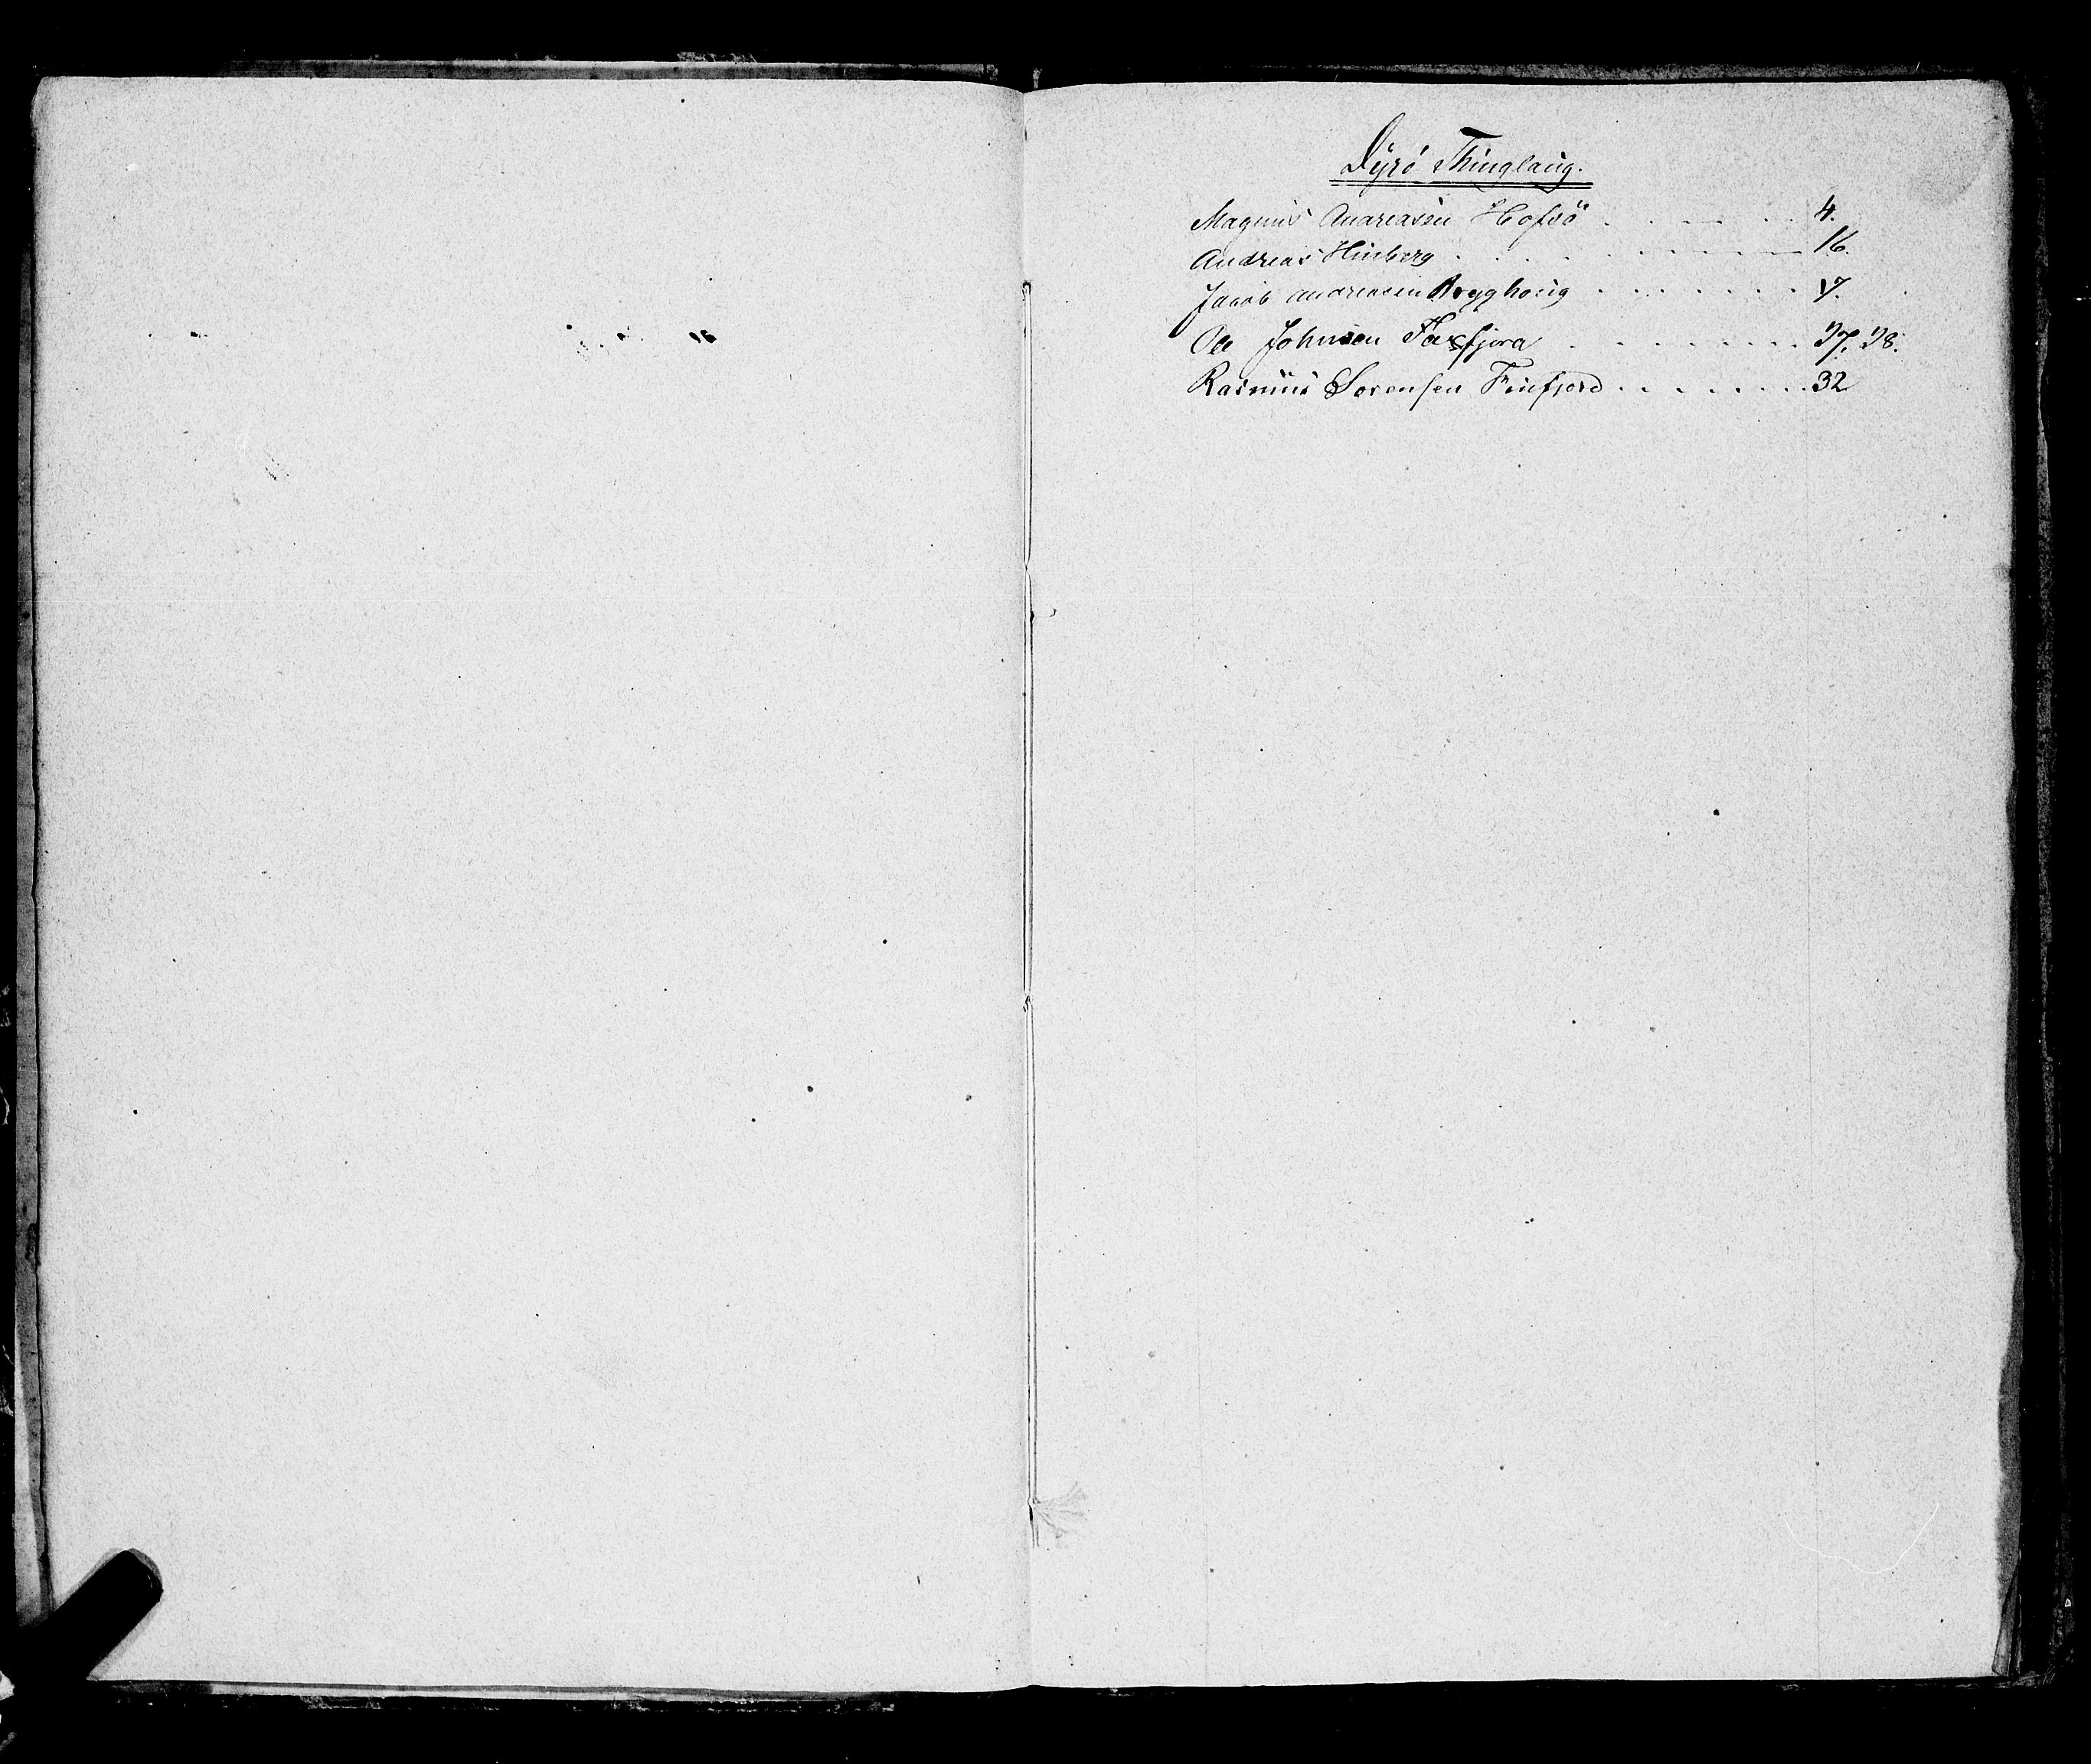 Dyrö Thinglaug.
Magnus Andreasen Hofsö . . . . . 4.
Andreas Hinberg . . . . . . . . . 16.
Jacob Andreasen Bryghoug . . . . . . 17.
Ole Johnsen Faxfjord . . . . . . . 27. 28.
Rasmus Sörensen Finfjord . . . . . . 32